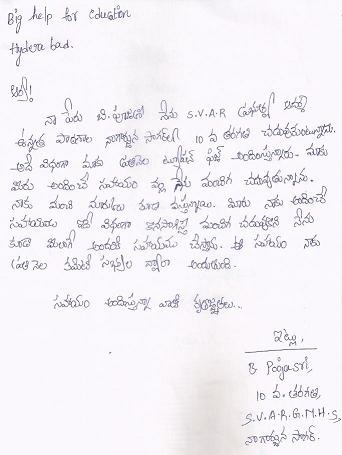 Big help for Education
Hydera bad.
నా పేరు బి. పూజశ్రీ నేను S.V.A.R ప్రభుత్వ బాలికల
ఉన్నత పాఠశాల నాగార్జున సాగర్‌లో 10 వ తరగతి చదువుతున్నాను.
అదే విధంగా మాకు ప్రతినెల ట్యూషన్ ఫీజు అందిస్తున్నారు. మాకు
మీరు అందించే సహాయం వల్ల నేను మంచిగ చదువుతున్నాను.
నాకు మంచి మార్కులు కూడా వస్తున్నాయి. మీరు నాకు అందించే
సహాయము ఇదే విధంగా కొనసాగిస్తే మంచిగ చదువుకొని నేను
కూడా మీలాగే అందరికి సహాయము చేస్తాను. ఈ సహాయం నాకు
ప్రతి నెల కమిటీ సభ్యుల ద్వారా అందుతుంది.
సహాయం అందిస్తున్న వారికి కృతజ్ఞతలు...
ఇట్లు,
B. Poojasri,
10 వ. తరగతి,
S.V.A.R.G.M.H.S,
నాగార్జున సాగర్.